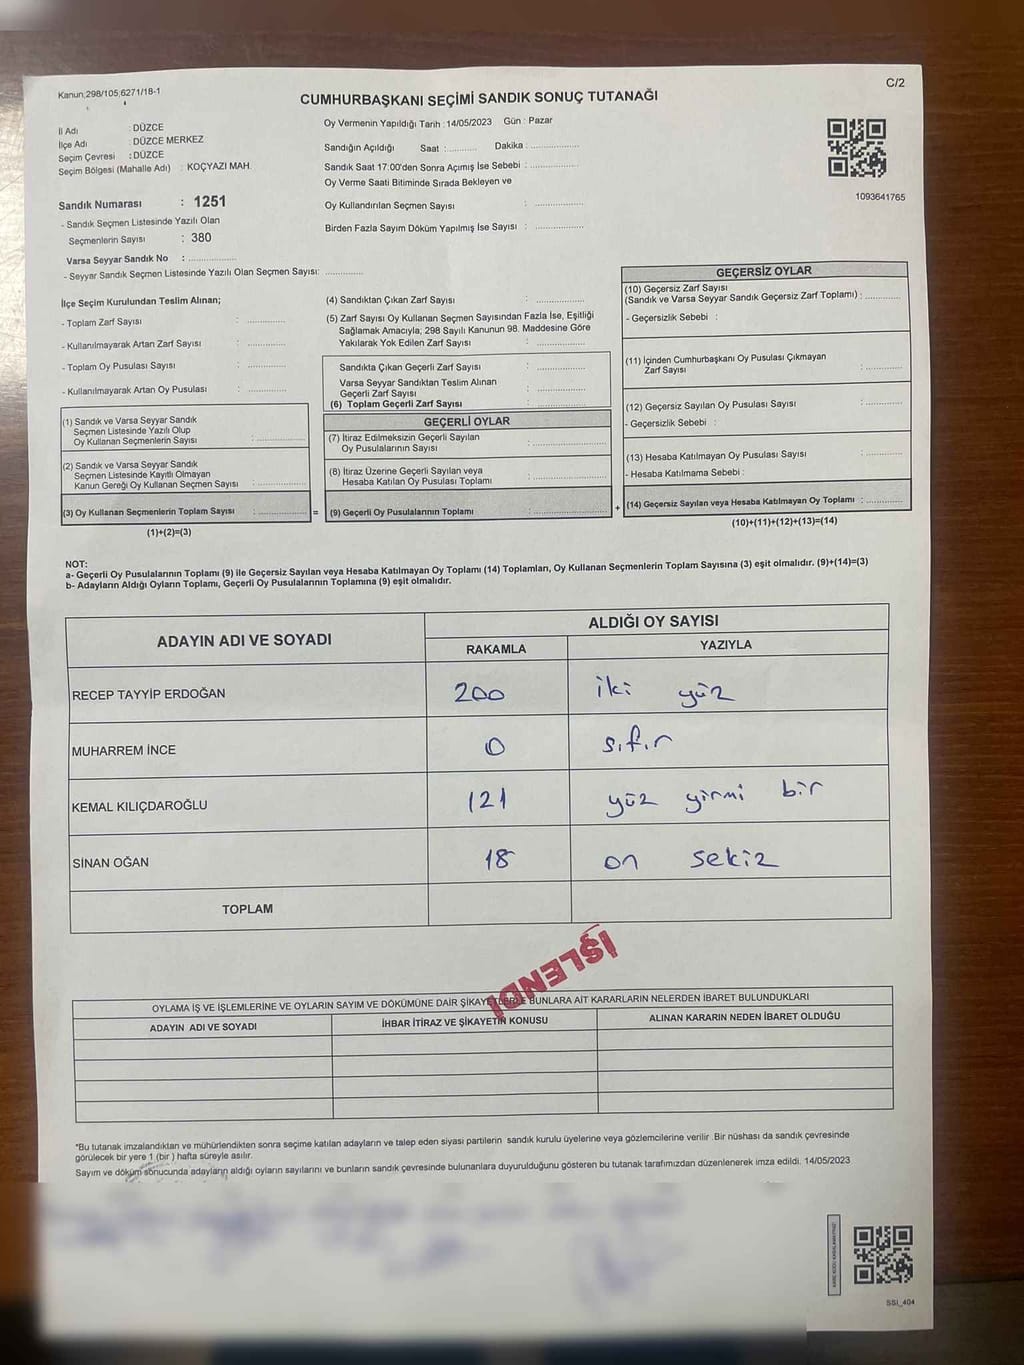 Kanun;298/105;6271/18-1
C/2
CUMHURBAŞKANI SEÇİMİ SANDIK SONUÇ TUTANAĞI
İl Adı : DÜZCE
İlçe Adı : DÜZCE MERKEZ
Seçim Çevresi : DÜZCE
Seçim Bölgesi (Mahalle Adı) : KOÇYAZI MAH.
Sandık Numarası : 1251
- Sandık Seçmen Listesinde Yazılı Olan
Seçmenlerin Sayısı : 380
Varsa Seyyar Sandık No : ................
- Seyyar Sandık Seçmen Listesinde Yazılı Olan Seçmen Sayısı: ............
Oy Vermenin Yapıldığı Tarih : 14/05/2023 Gün : Pazar
Sandığın Açıldığı Saat : .......... Dakika : ................
Sandık Saat 17:00'den Sonra Açımış İse Sebebi : ................
Oy Verme Saati Bitiminde Sırada Bekleyen ve
Oy Kullandırılan Seçmen Sayısı : ................
Birden Fazla Sayım Döküm Yapılmış İse Sayısı : ................
1093641765
İlçe Seçim Kurulundan Teslim Alınan;
- Toplam Zarf Sayısı : .............
- Kullanılmayarak Artan Zarf Sayısı : .............
- Toplam Oy Pusulası Sayısı : .............
- Kullanılmayarak Artan Oy Pusulası : .............
(1) Sandık ve Varsa Seyyar Sandık
Seçmen Listesinde Yazılı Olup
Oy Kullanan Seçmenlerin Sayısı : ................
(2) Sandık ve Varsa Seyyar Sandık
Seçmen Listesinde Kayıtlı Olmayan
Kanun Gereği Oy Kullanan Seçmen Sayısı : ................
(3) Oy Kullanan Seçmenlerin Toplam Sayısı : ................
(1)+(2)=(3)
=
(4) Sandıktan Çıkan Zarf Sayısı : ................
(5) Zarf Sayısı Oy Kullanan Seçmen Sayısından Fazla İse, Eşitliği
Sağlamak Amacıyla; 298 Sayılı Kanunun 98. Maddesine Göre
Yakılarak Yok Edilen Zarf Sayısı : ................
Sandıkta Çıkan Geçerli Zarf Sayısı : ................
Varsa Seyyar Sandıktan Teslim Alınan
Geçerli Zarf Sayısı : ................
(6) Toplam Geçerli Zarf Sayısı : ................
GEÇERLİ OYLAR
(7) İtiraz Edilmeksizin Geçerli Sayılan
Oy Pusulalarının Sayısı : ................
(8) İtiraz Üzerine Geçerli Sayılan veya
Hesaba Katılan Oy Pusulası Toplamı : ................
(9) Geçerli Oy Pusulalarının Toplamı : ................
+
GEÇERSİZ OYLAR
(10) Geçersiz Zarf Sayısı
(Sandık ve Varsa Seyyar Sandık Geçersiz Zarf Toplamı) : ............
- Geçersizlik Sebebi :
(11) İçinden Cumhurbaşkanı Oy Pusulası Çıkmayan
Zarf Sayısı : ............
(12) Geçersiz Sayılan Oy Pusulası Sayısı : ............
- Geçersizlik Sebebi :
(13) Hesaba Katılmayan Oy Pusulası Sayısı : ............
- Hesaba Katılmama Sebebi :
(14) Geçersiz Sayılan veya Hesaba Katılmayan Oy Toplamı : ............
(10)+(11)+(12)+(13)=(14)
NOT:
a- Geçerli Oy Pusulalarının Toplamı (9) ile Geçersiz Sayılan veya Hesaba Katılmayan Oy Toplamı (14) Toplamları, Oy Kullanan Seçmenlerin Toplam Sayısına (3) eşit olmalıdır. (9)+(14)=(3)
b- Adayların Aldığı Oyların Toplamı, Geçerli Oy Pusulalarının Toplamına (9) eşit olmalıdır.
ADAYIN ADI VE SOYADI ALDIĞI OY SAYISI
RAKAMLA YAZIYLA
RECEP TAYYİP ERDOĞAN 200 iki yüz
MUHARREM İNCE 0 sıfır
KEMAL KILIÇDAROĞLU 121 yüz yirmi bir
SİNAN OĞAN 18 on sekiz
TOPLAM
İŞLENDİ
OYLAMA İŞ VE İŞLEMLERİNE VE OYLARIN SAYIM VE DÖKÜMÜNE DAİR ŞİKAYETLERLE BUNLARA AİT KARARLARIN NELERDEN İBARET BULUNDUKLARI
ADAYIN ADI VE SOYADI İHBAR İTİRAZ VE ŞİKAYETİN KONUSU ALINAN KARARIN NEDEN İBARET OLDUĞU
*Bu tutanak imzalandıktan ve mühürlendikten sonra seçime katılan adayların ve talep eden siyasi partilerin sandık kurulu üyelerine veya gözlemcilerine verilir .Bir nüshası da sandık çevresinde
görülecek bir yere 1 (bir ) hafta süreyle asılır.
Sayım ve döküm sonucunda adayların aldığı oyların sayılarını ve bunların sandık çevresinde bulunanlara duyurulduğunu gösteren bu tutanak tarafımızdan düzenlenerek imza edildi. 14/05/2023
SSI_404